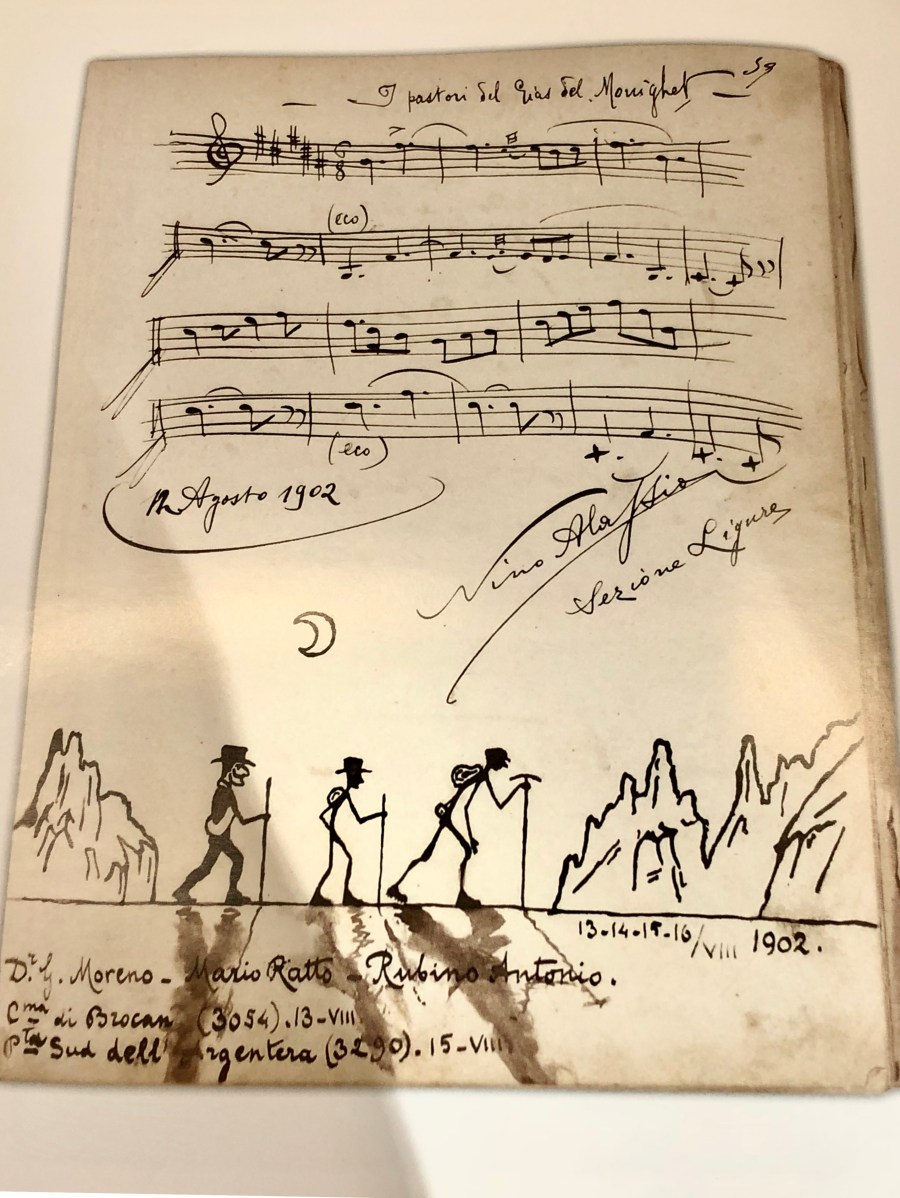 — I pastori del Gias del Monighet — 59
6
8
(eco)
(eco)
12 Agosto 1902
Nino Alassio
Sezione Ligure
13-14-15-16/VIII 1902.
D.r G. Moreno - Mario Ratto - Rubino Antonio.
Cma di Brocan (3054). 13-VIII
Pta Sud dell'Argentera (3290). 15-VIII